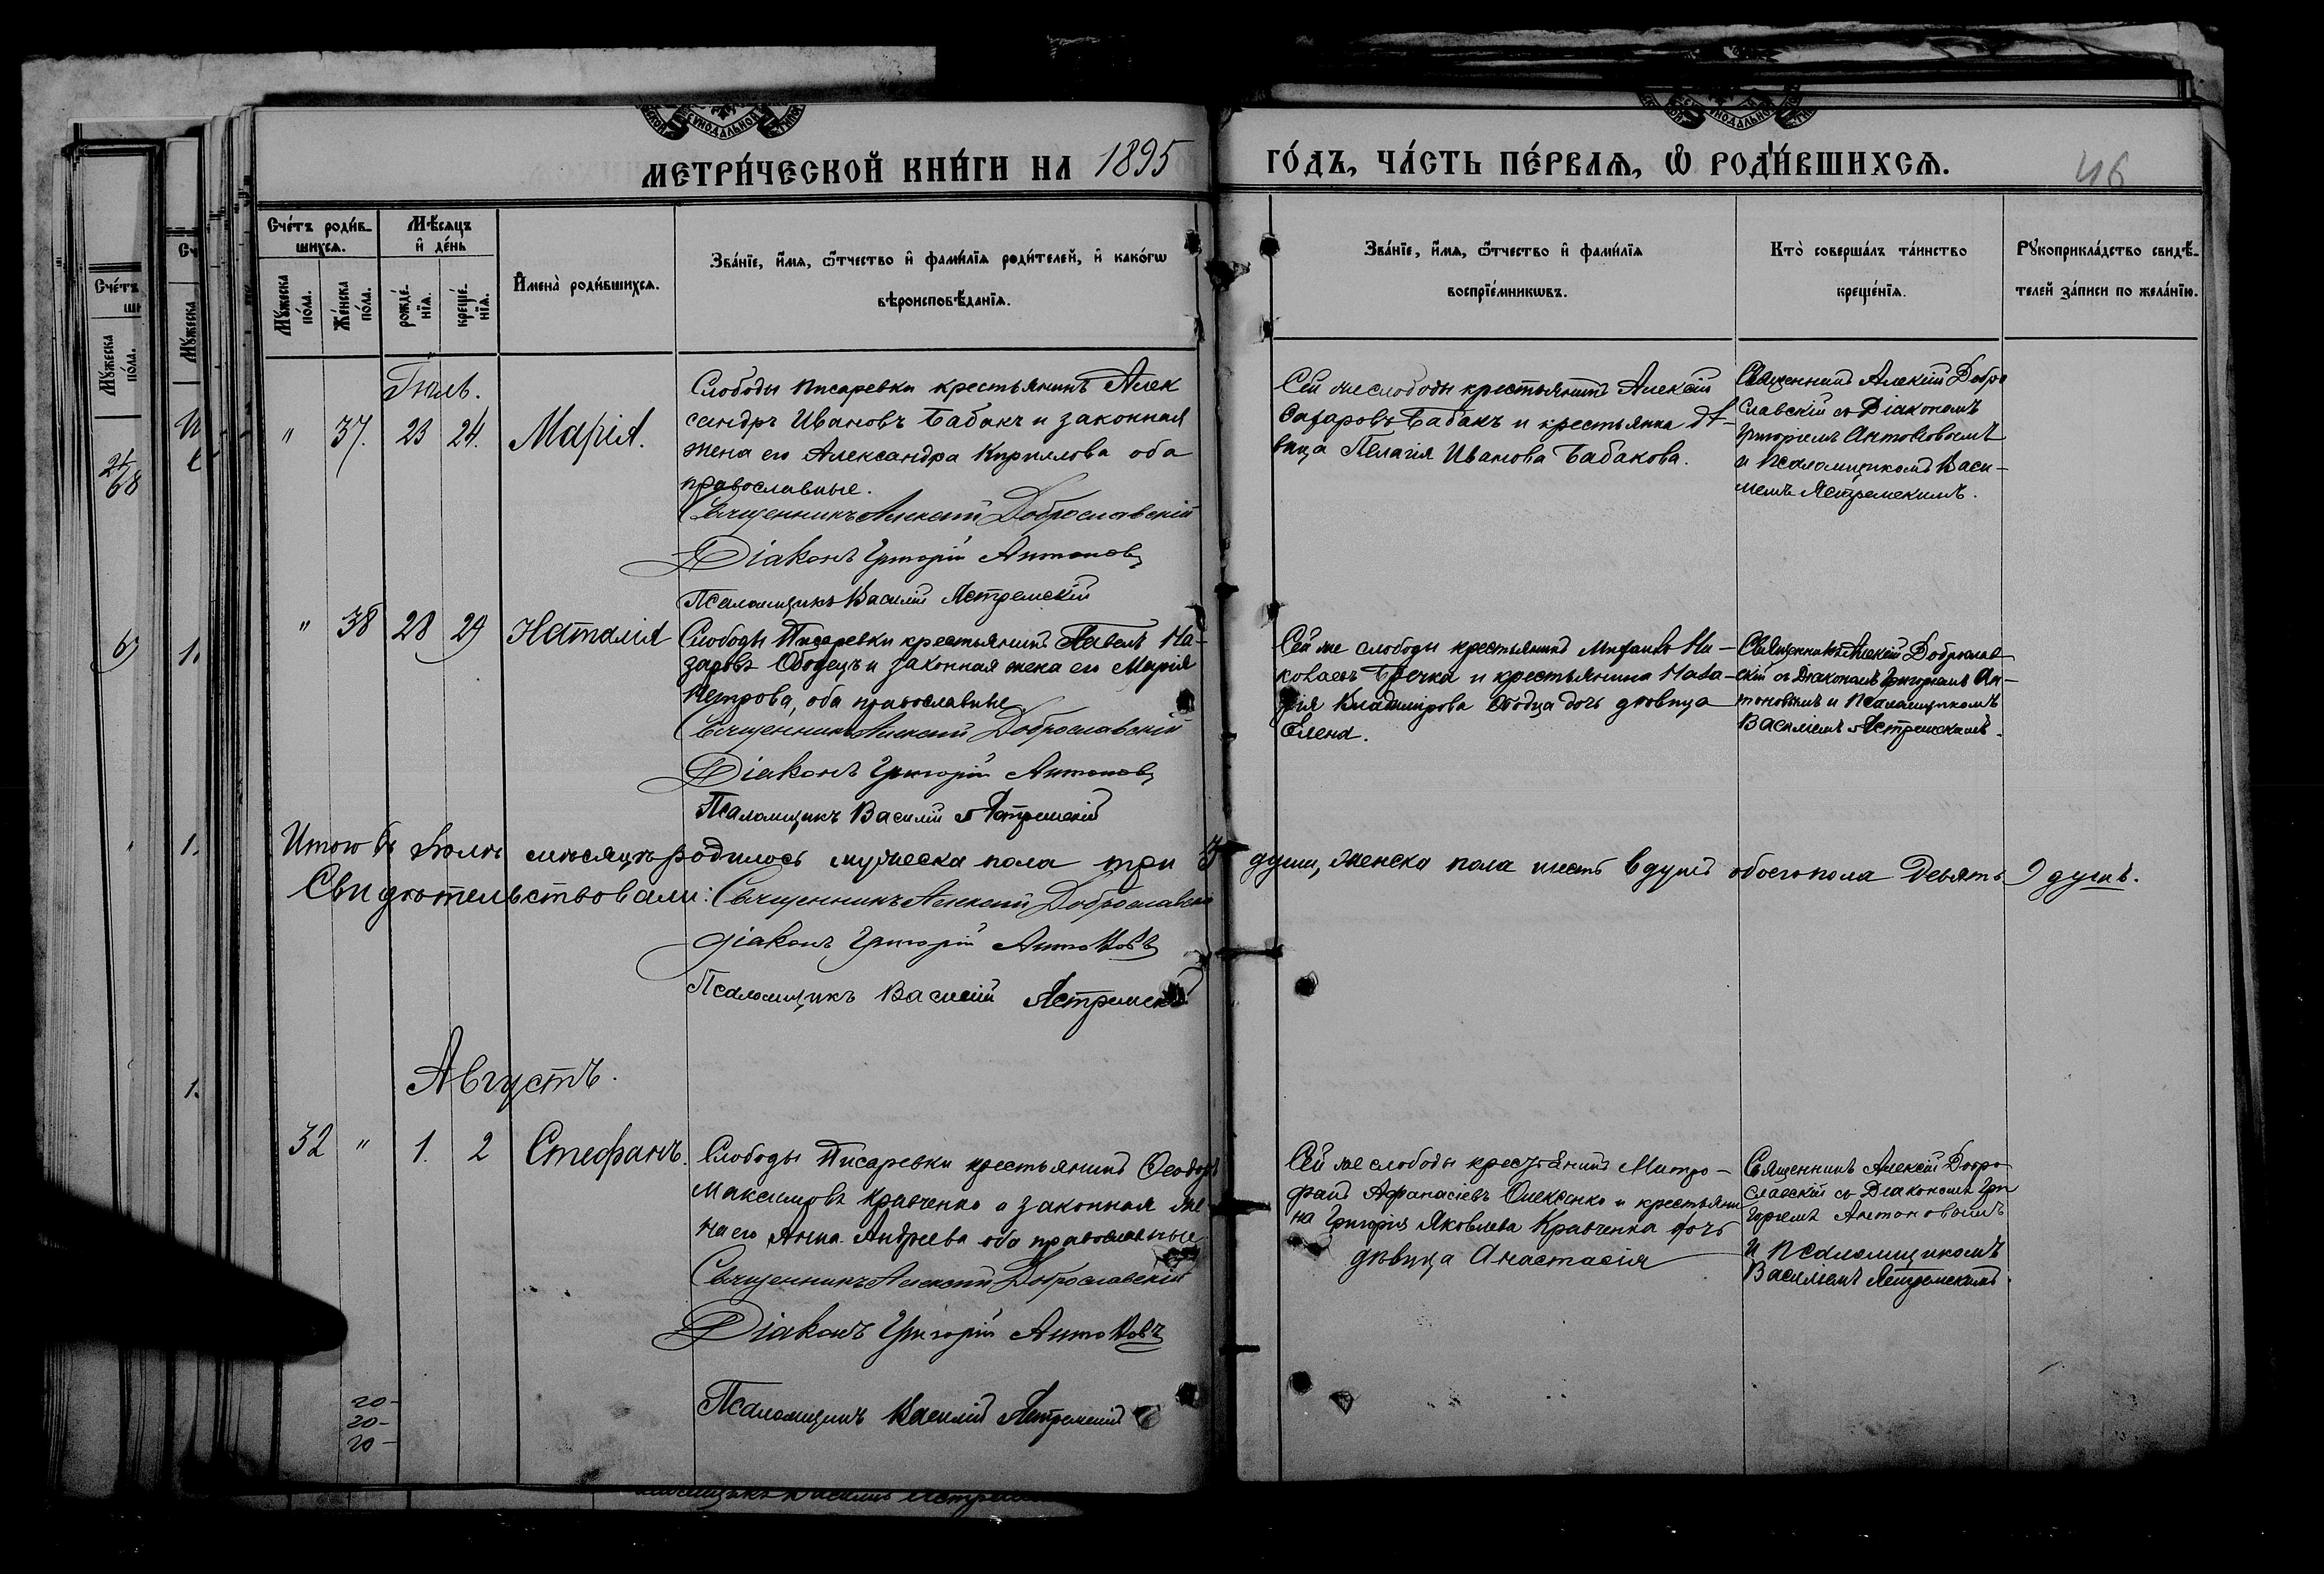 МЕТРИ́ЧЕСКОЙ КНИ́ГИ НА 1895 ГО́ДЪ, ЧА́СТЬ ПЕ́РВАЯ, Ѡ҆ РОДИ́ВШИХСЯ.
46
Сче́тъ роди́в-
шихся.
Мѣ́сяцъ
и҆ де́нь
Мꙋ́жеска
по́ла.
Же́нска
по́ла.
рожде́-
нїя.
креще́-
нїя.
И҆мена̀ роди́вшихся.
Зва́нїе, и҆́мя, ѻ҆́тчество и҆ фами́лїя роди́телей, и҆ како́гѡ
вѣроисповѣ́данїя.
Зва́нїе, и҆́мя, ѻ҆́тчество и҆ фами́лїя
воспрїе́мниковъ.
Кто̀ соверша́лъ та́инство
креще́нїя.
Рꙋкоприкла́дство свидѣ́-
телей за́писи по жела́нїю.
Іюль.
" 37. 23 24. Марія.
Слободы Писаревки крестьянинъ Алек
сандръ Ивановъ Бабакъ и законная
жена его Александра Кириллова оба
православные.
Священникъ Алексій Доброславскій
Діаконъ Григорій Антоновъ
Псаломщикъ Василій Ястремскій
Сей же слободы крестьянинъ Алексій
Бабакъ и крестьянка дѣ-
вица Пелагія Иванова Бабакова.
Священникъ Алексій Добро
славскій съ Діакономъ
Григоріемъ Антоновымъ
и Псаломщикомъ Васи-
ліемъ Ястремскимъ.
" 38 28 29 Наталія
Слободы Писаревки крестьянинъ Павелъ На-
заровъ Ободецъ и законная жена его Марія
Петрова, оба православные
Священникъ Алексій Доброславскій
Діаконъ Григорій Антоновъ
Псаломщикъ Василій Ястремскій
Сей же слободы крестьянинъ Ни-
колаевъ и крестьянина
Владимірова Ободца дочь дѣвица
Елена.
Священникъ Алексій Доброслав
скій съ Діакономъ Григоріемъ Ан-
тоновымъ и Псаломщикомъ
Василіемъ Ястремскимъ.
Итого въ Іюлѣ мѣсяцѣ родилось мужеска пола три 3 души, женска пола шесть 6 душъ обоего пола девять 9 душъ.
Свидѣтельствовали: Священникъ Алексій Доброславскій
Діаконъ Григорій Антоновъ
Псаломщикъ Василій Ястремскій
Августъ.
32 " 1. 2 Стефанъ.
Слободы Писаревки крестьянинъ Ѳеодоръ
Максимовъ Кравченко и законная же
на его Анна Андреева оба православные
Священникъ Алексій Доброславскій
Діаконъ Григорій Антоновъ
Псаломщикъ Василій Ястремскій
Сей же слободы крестьянинъ Митро-
фанъ Афанасіевъ Олексенко и крестьяни
на Григорія Яковлева Кравченка дочь
дѣвица Анастасія
Священникъ Алексій Добро
славскій съ Діакономъ Гри
горіемъ Антоновымъ
и Псаломщикомъ
Василіемъ Ястремскимъ.
20-
20-
20-